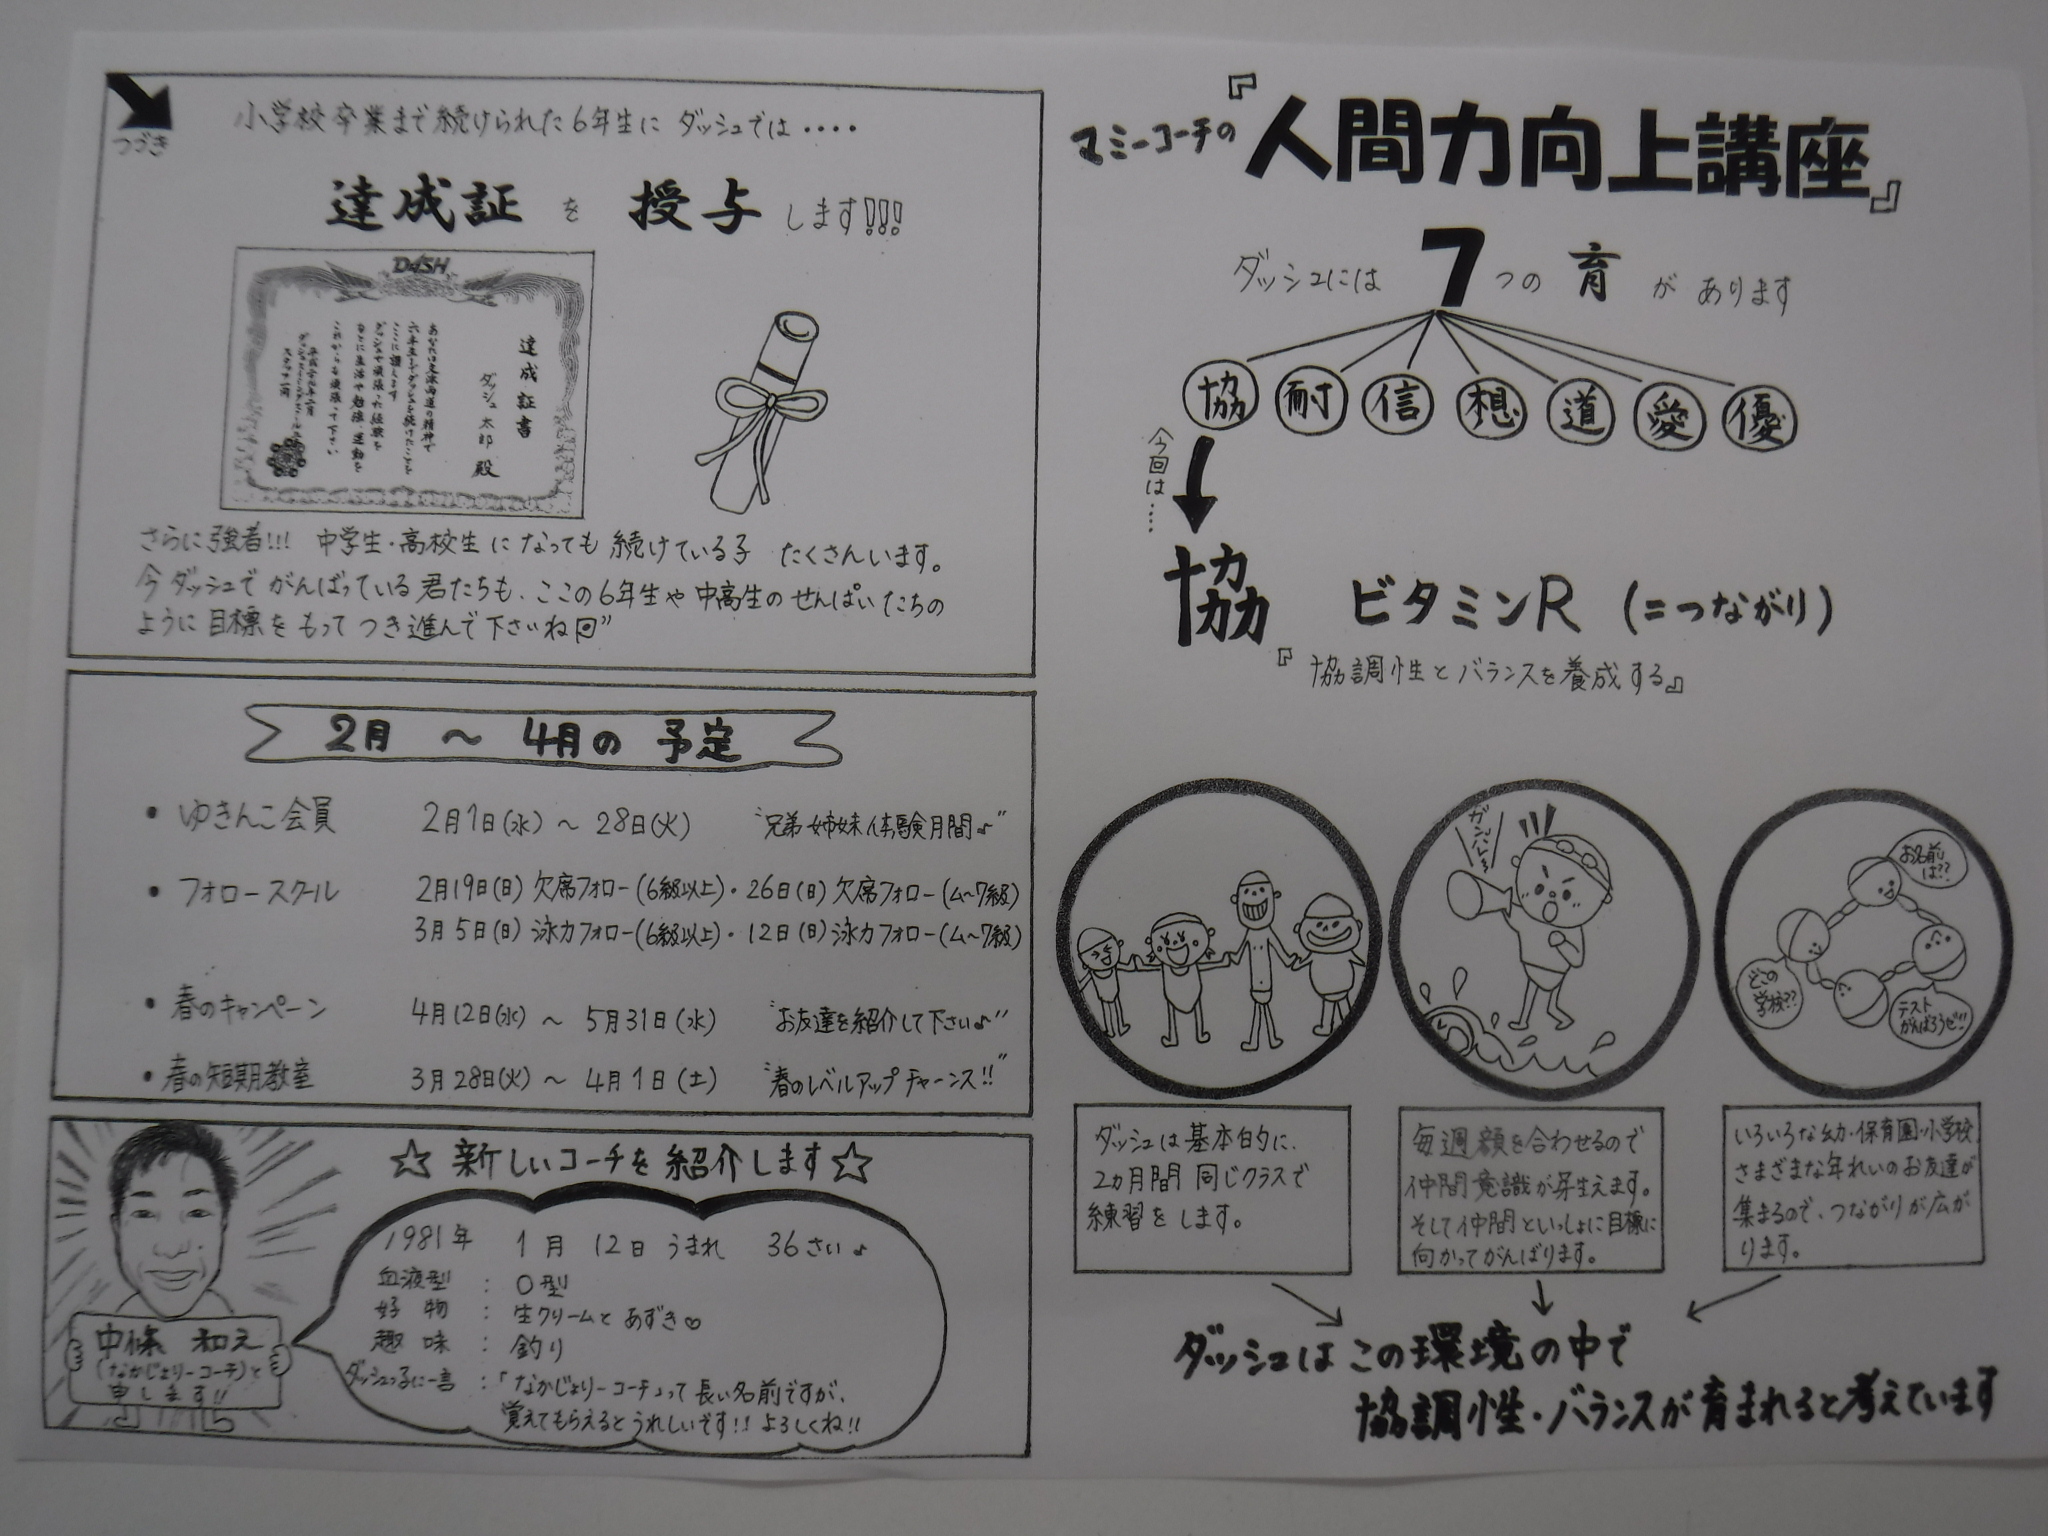 つづき
小学校卒業まで続けられた6年生に ダッシュでは・・・・
達成証 を 授与 します!!!
DASH
達成証書
ダッシュ 太郎 殿
さらに強者!!! 中学生・高校生になっても続けている子 たくさんいます。
今ダッシュでがんばっている君たちも、ここの6年生や中高生のせんぱいたちの
ように目標をもってつき進んで下さいね
2月 ～ 4月の予定
・ゆきんこ会員 2月1日(水)～28日(火) "兄弟姉妹体験月間♪"
・フォロースクール 2月19日(日)欠席フォロー(6級以上)・26日(日)欠席フォロー(ム～7級)
3月5日(日)泳力フォロー(6級以上)・12日(日)泳力フォロー(ム～7級)
・春のキャンペーン 4月12日(水)～5月31日(水) "お友達を紹介して下さい♪"
・春の短期教室 3月28日(火)～4月1日(土) "春のレベルアップチャーンス!!"
☆新しいコーチを紹介します☆
1981年 1月 12日 うまれ 36さい♪
血液型 : O型
好物 : 生クリームとあずき♡
趣味 : 釣り
ダッシュっ子に一言 : 「なかじょりーコーチ」って長い名前ですが、
覚えてもらえるとうれしいです!! よろしくね!!
中條 和
(なかじょりーコーチ)と
申します!!
マミーコーチの『人間力向上講座』
ダッシュには7つの育があります
協 耐 信 想 道 愛 優
今回は・・・・
協 ビタミンR (=つながり)
『協調性とバランスを養成する』
ガンバレ
お名前
は??
どこの
学校??
テスト
がんばろうぜ!!
ダッシュは基本的に、
2ヵ月間同じクラスで
練習をします。
毎週顔を合わせるので
仲間意識が芽生えます。
そして仲間といっしょに目標に
向かってがんばります。
いろいろな幼・保育園・小学校
さまざまな年れいのお友達が
集まるので、つながりが広が
ります。
ダッシュはこの環境の中で
協調性・バランスが育まれると考えています